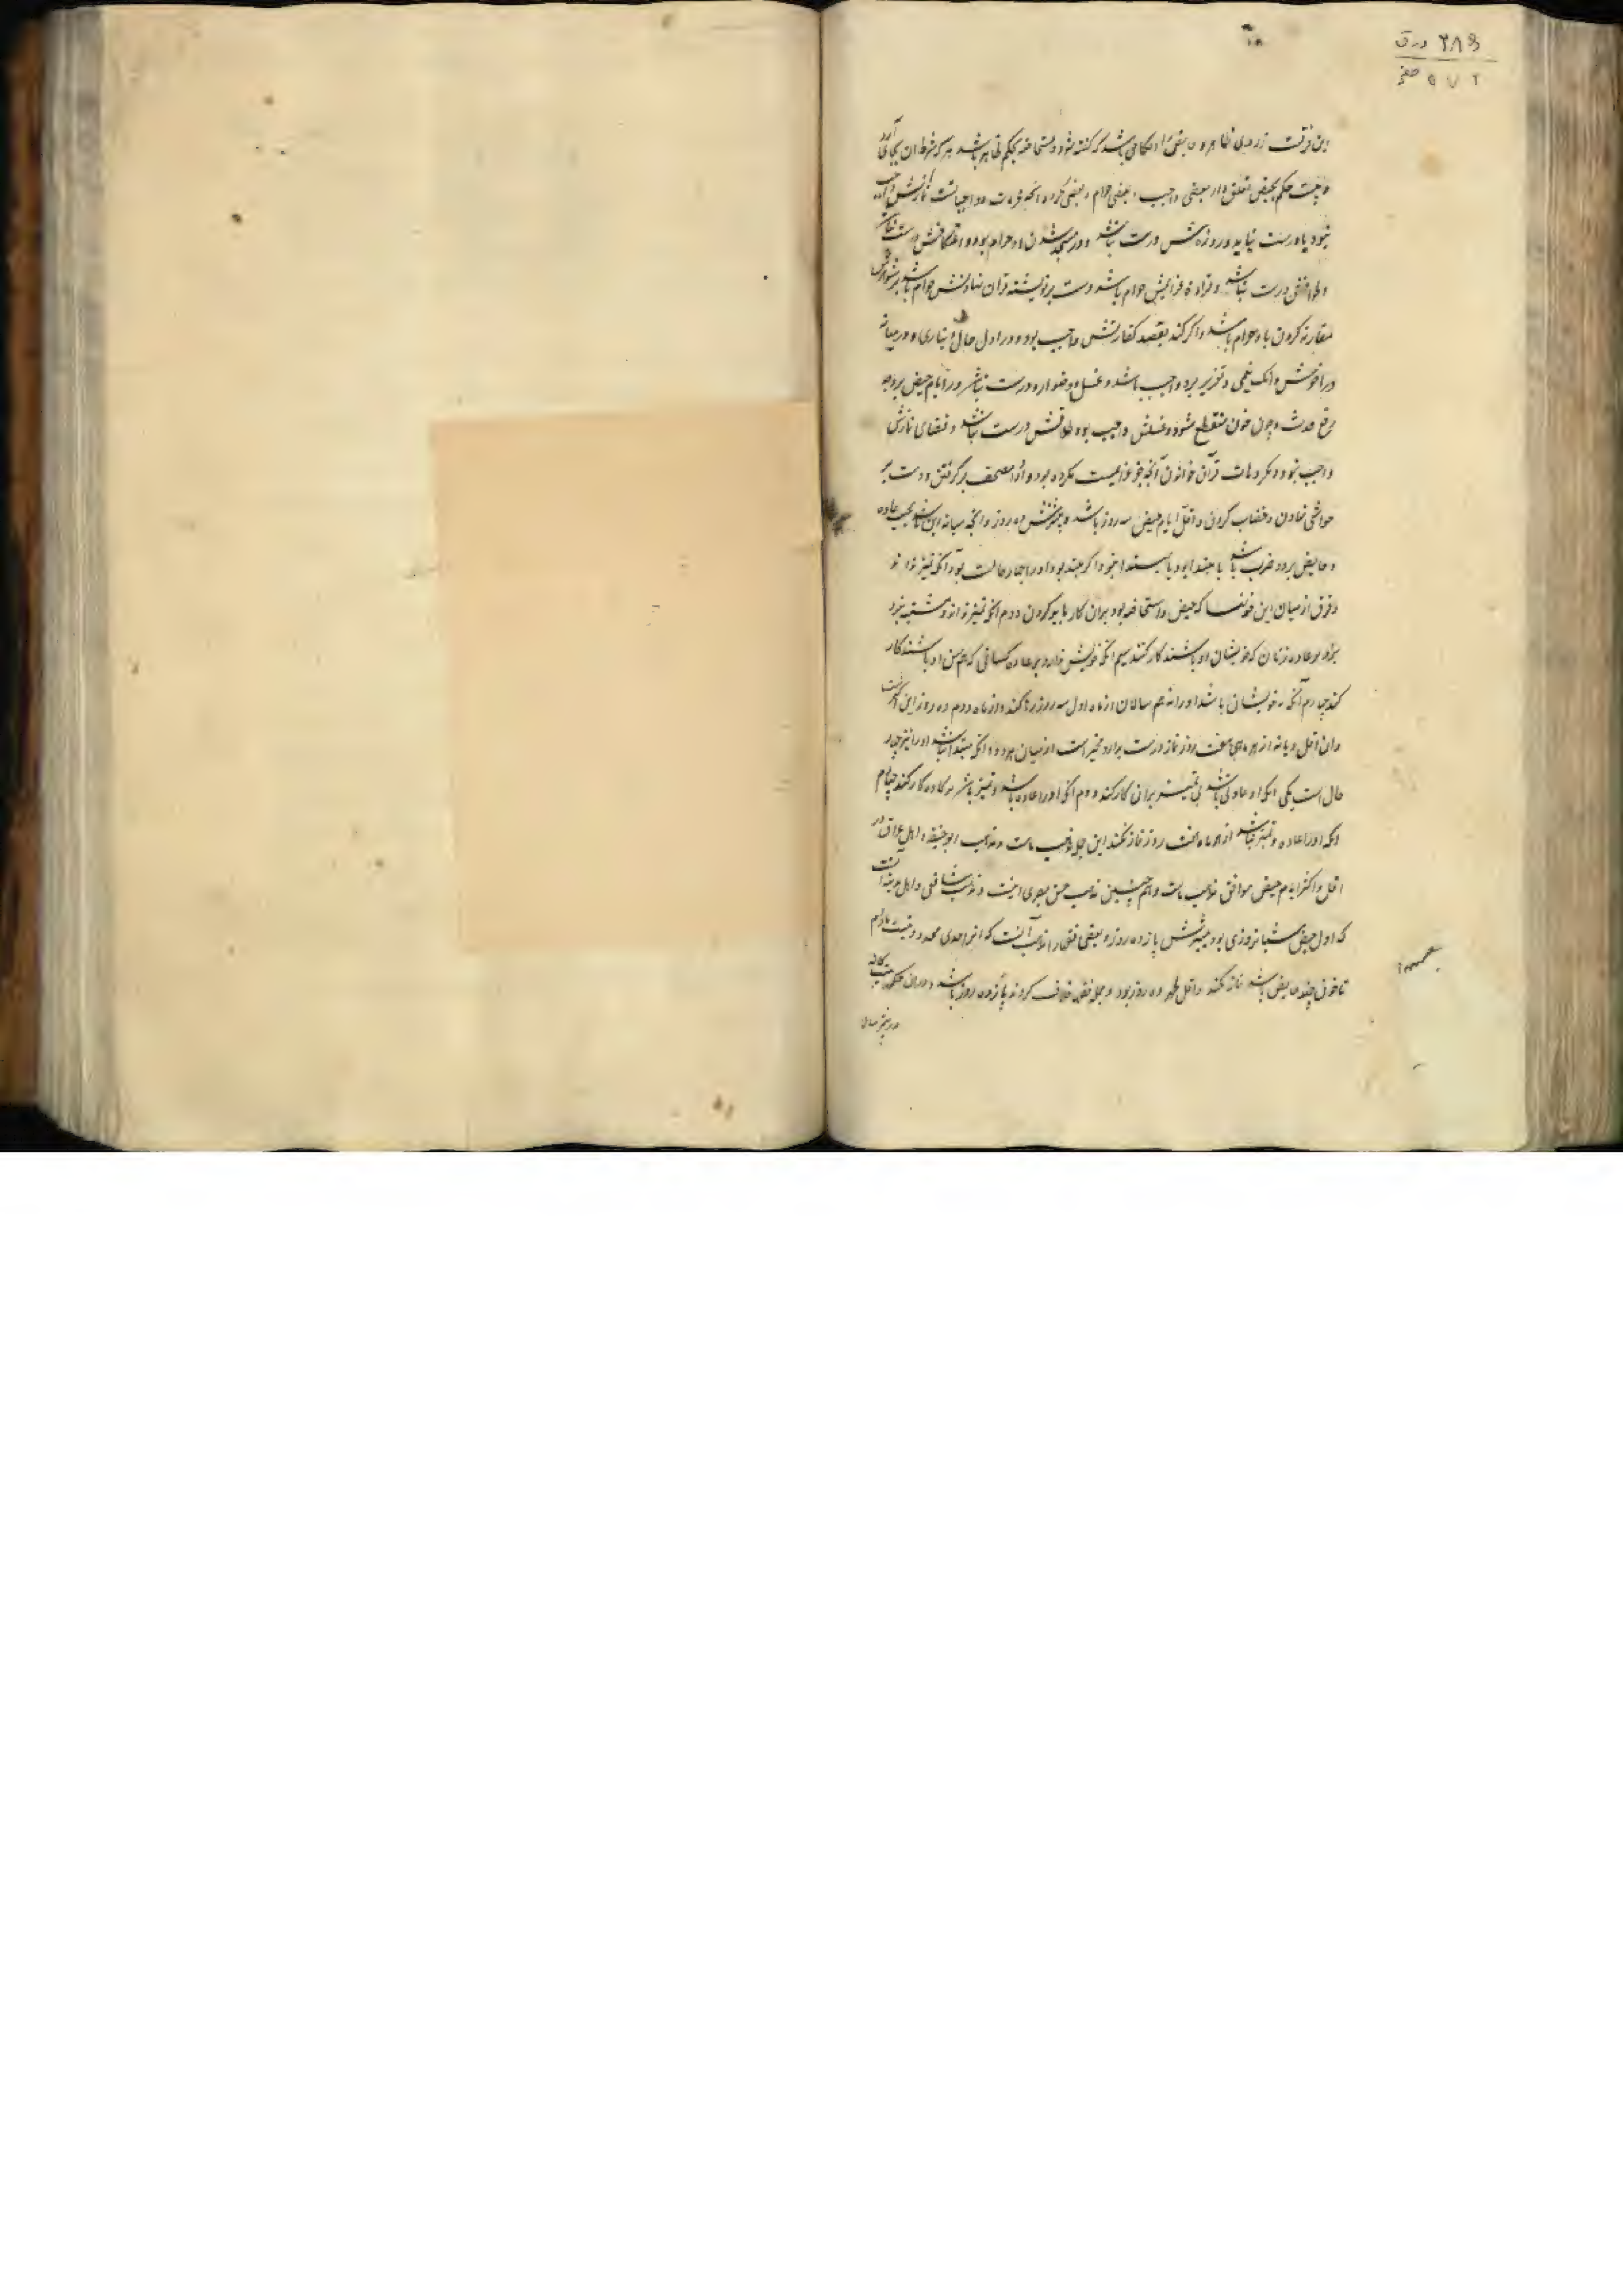 ۲۸۶ ورق
۵۷۲ صفحه
این فرقت زردی ظاهر و حایض را احکامی باشد که گفته شود و مستحاضه بحکم طاهر باشد هر که شرط آن بجای آرد
و بیست حکم بحیض تعلق دارد بعضی واجب و بعضی حرام و بعضی مکروه آنچه محرمات و واجباتست نمازش واجب
نبود یا درست نیاید و روزه‌ش درست نباشد و در مسجد شدن او حرام بود و اعتکافش درست نباشد
و طوافش درست نباشد و قراءة عزایمش حرام باشد دست بر نوشته قرآن نهادنش حرام باشد بر شوهرش
مقاربه کردن با او حرام باشد و اگر کند بقصد کفارتش واجب بود و در اول حال دیناری و در میانه
در آخرش دانک نیمی و تعزیر برو واجب باشد و غسل و وضو او را درست نباشد در ایام حیض بر وجه
رفع حدث و چون خون منقطع شود و غسلش واجب بود طلاقش درست نباشد و قضای نمازش
واجب نبود و مکروهات قرآن خواندن آنچه جز عزایمست مکروه بود او را و مصحف برگرفتن و دست بر
حواشی نهادن و خضاب کردن و اقل ایام حیض سه روز باشد و بیشترش ده روز و آنچه میانه این باشد بحسب عاده
و حایض بر دو ضرب باشد یا مبتدا بود یا مبتدا نبود اگر مبتدا بود او را چهار حالت بود آنکه تمییز تواند
و فرق از میان این خونها که حیض و استحاضه بود بر آن کار باید کردن دوم آنکه تمییز نتواند و مشتبه بود
برو بر عاده زنان که خویشان او باشند کار کند سیم آنکه خویش ندارد بر عاده کسانی که هم سن او باشند کار
کند چهارم آنکه نه خویشان باشد او را نه هم سالان از ماه اول سه روز رها کند و از ماه دوم ده روز این اکثر است
و آن اقل و یا نه از هر ماهی هفت روز نماز دست بدارد مخیر است از میان هر دو و آنکه مبتدا نباشد او را نیز چهار
حال است یکی آنکه او را عادتی باشد بی تمییز بر آن کار کند دوم آنکه او را عاده باشد و تمییز باشد بر عاده کار کند چهارم
آنکه او را عاده و تمییز نباشد از هر ماه هفت روز نماز نکند این جمله مذهب ماست و مذهب ابو حنیفه و اهل عراق در
اقل و اکثر ایام حیض موافق مذهب ماست و هم چنین مذهب حسن بصری اینست و مذهب شافعی و اهل مدینه آنست
که اول حیض شبانروزی بود بیشترش پانزده روز و بعضی فقها را مذهب آنست که آنرا حدی محدود نیست مادام
تا خون بیند حایض باشد نماز نکند و اقل طهر ده روز بود و جمله فقها خلاف کردند پانزده روز باشد و در آن حکم